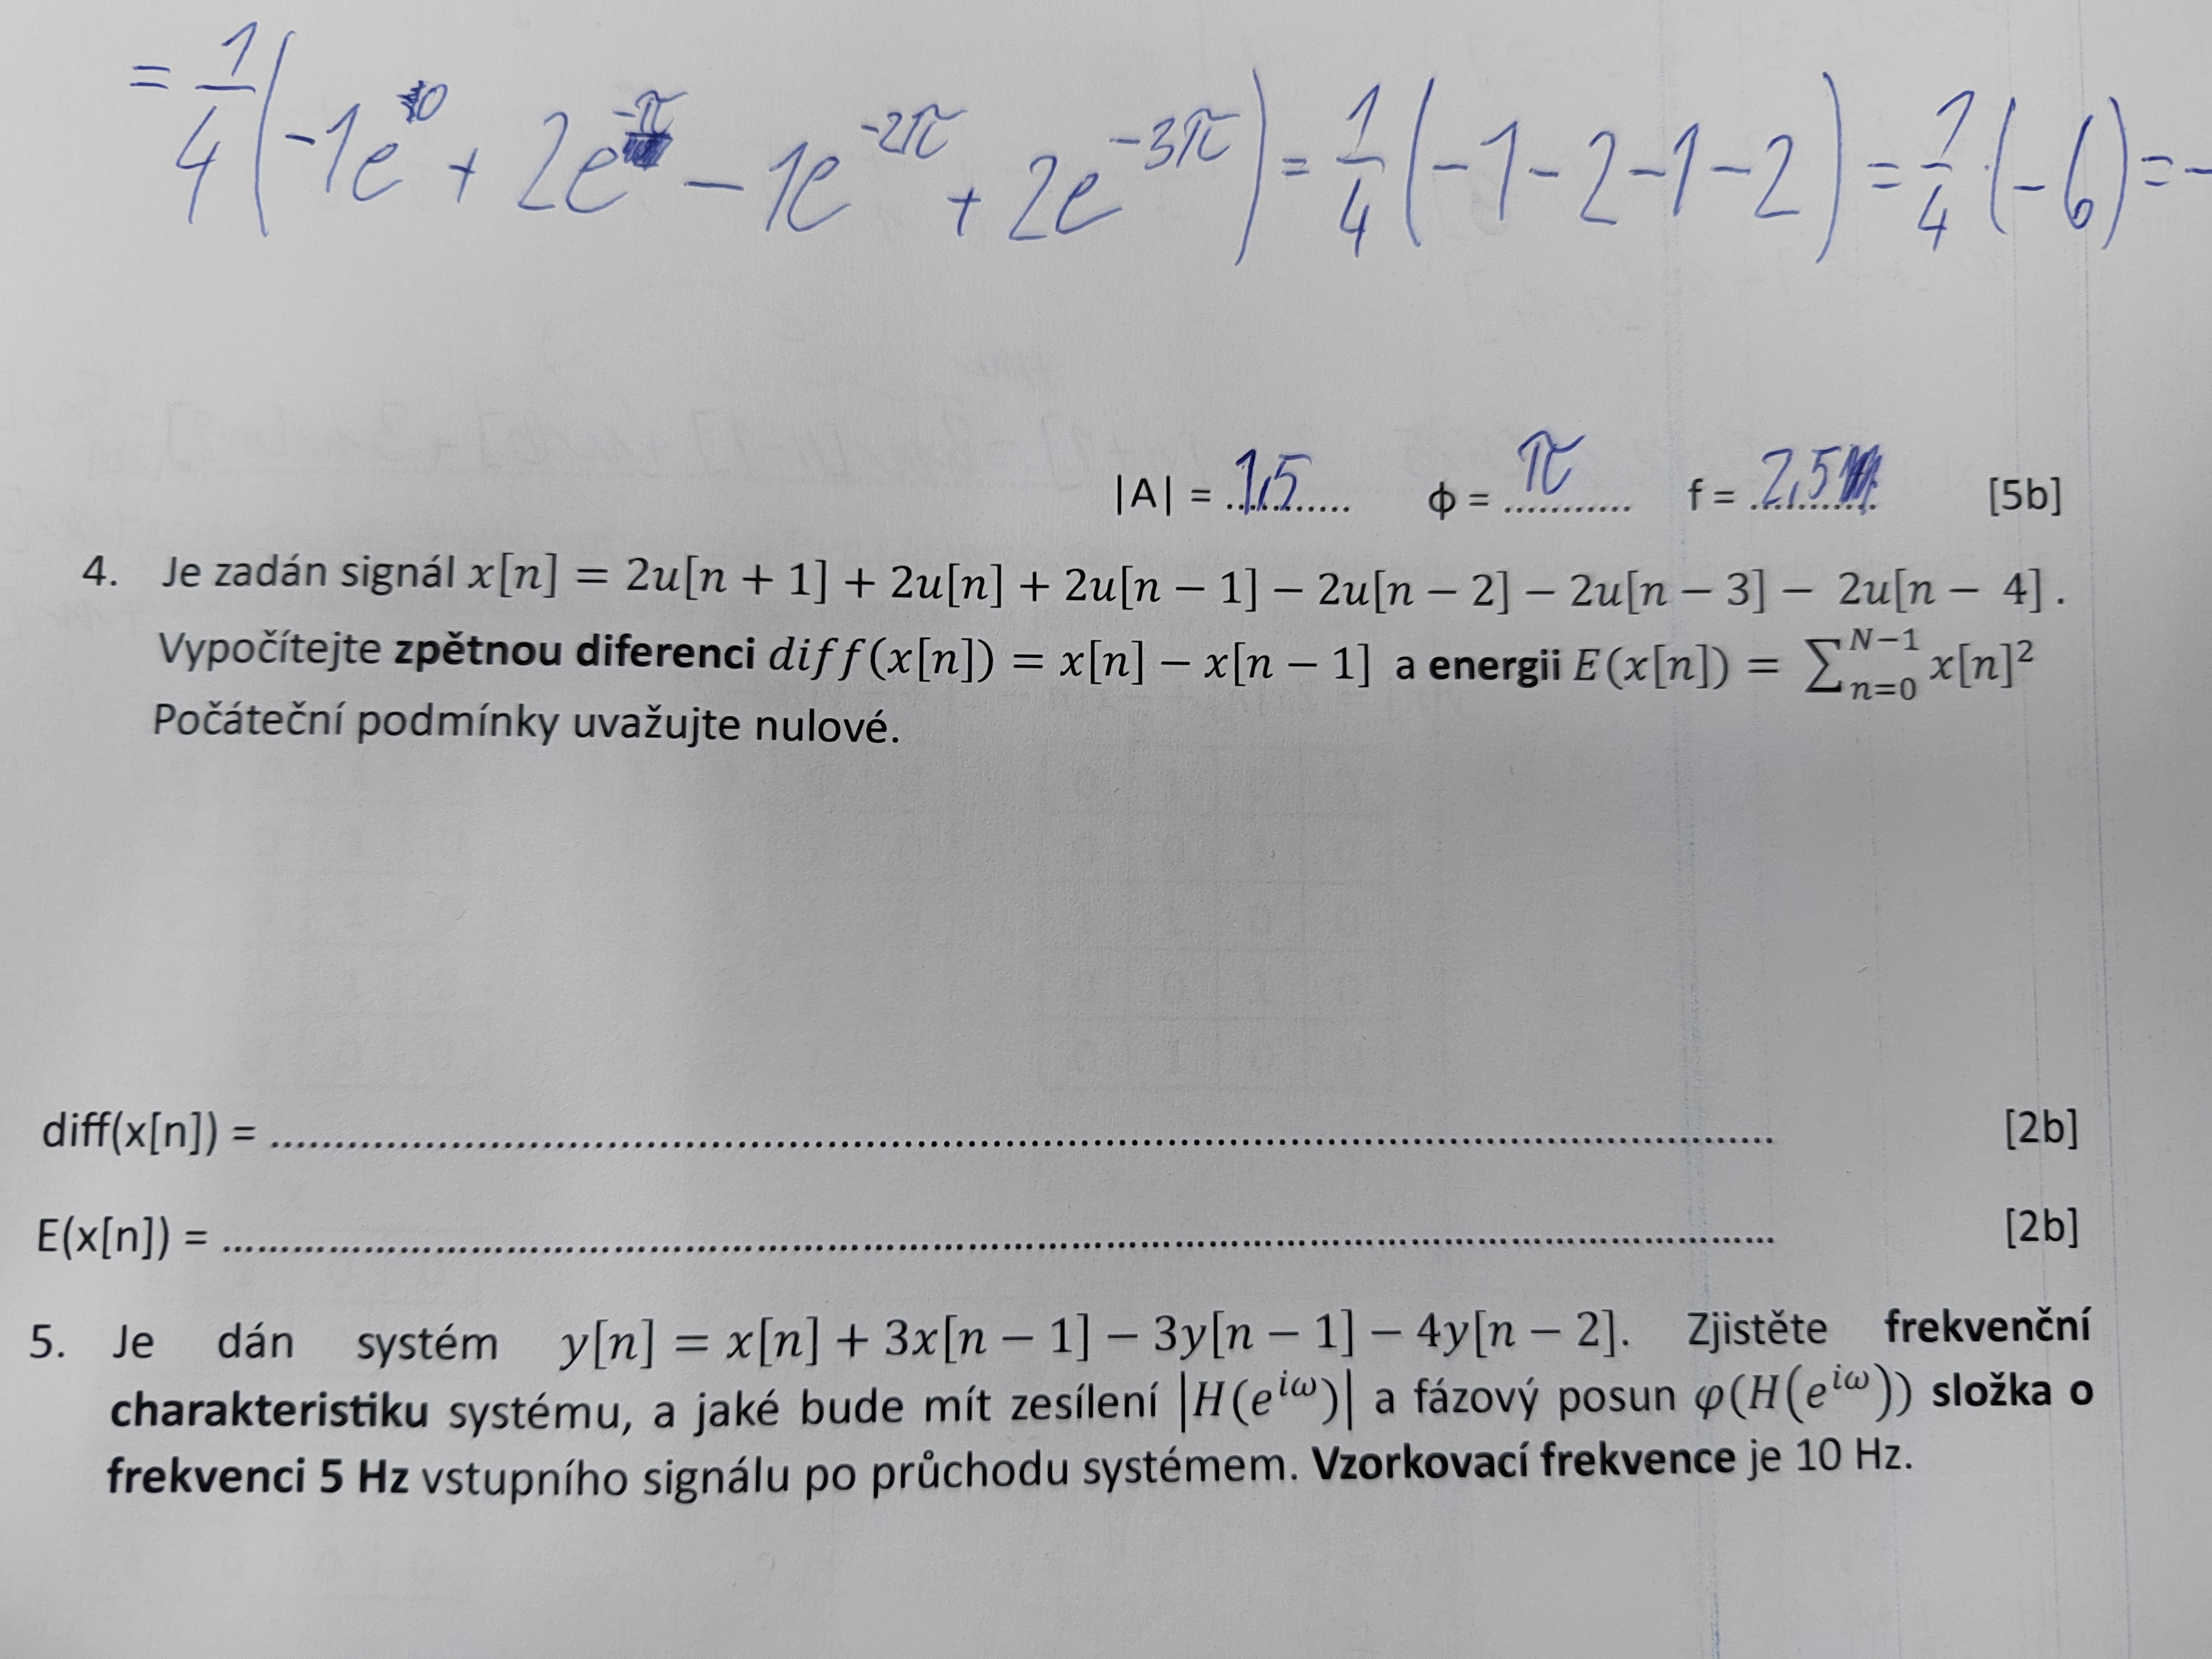 = 1/4 (-1e^0 + 2e^-π - 1e^-2π + 2e^-3π) = 1/4 (-1-2-1-2) = 1/4 · (-6) = -
|A| = 1,5 ϕ = π f = 2,5 [5b]
4. Je zadán signál x[n] = 2u[n + 1] + 2u[n] + 2u[n − 1] − 2u[n − 2] − 2u[n − 3] − 2u[n − 4] .
Vypočítejte zpětnou diferenci diff(x[n]) = x[n] − x[n − 1] a energii E(x[n]) = ∑_{n=0}^{N−1} x[n]²
Počáteční podmínky uvažujte nulové.
diff(x[n]) = .......... [2b]
E(x[n]) = .......... [2b]
5. Je dán systém y[n] = x[n] + 3x[n − 1] − 3y[n − 1] − 4y[n − 2]. Zjistěte frekvenční
charakteristiku systému, a jaké bude mít zesílení |H(e^{iω})| a fázový posun φ(H(e^{iω})) složka o
frekvenci 5 Hz vstupního signálu po průchodu systémem. Vzorkovací frekvence je 10 Hz.